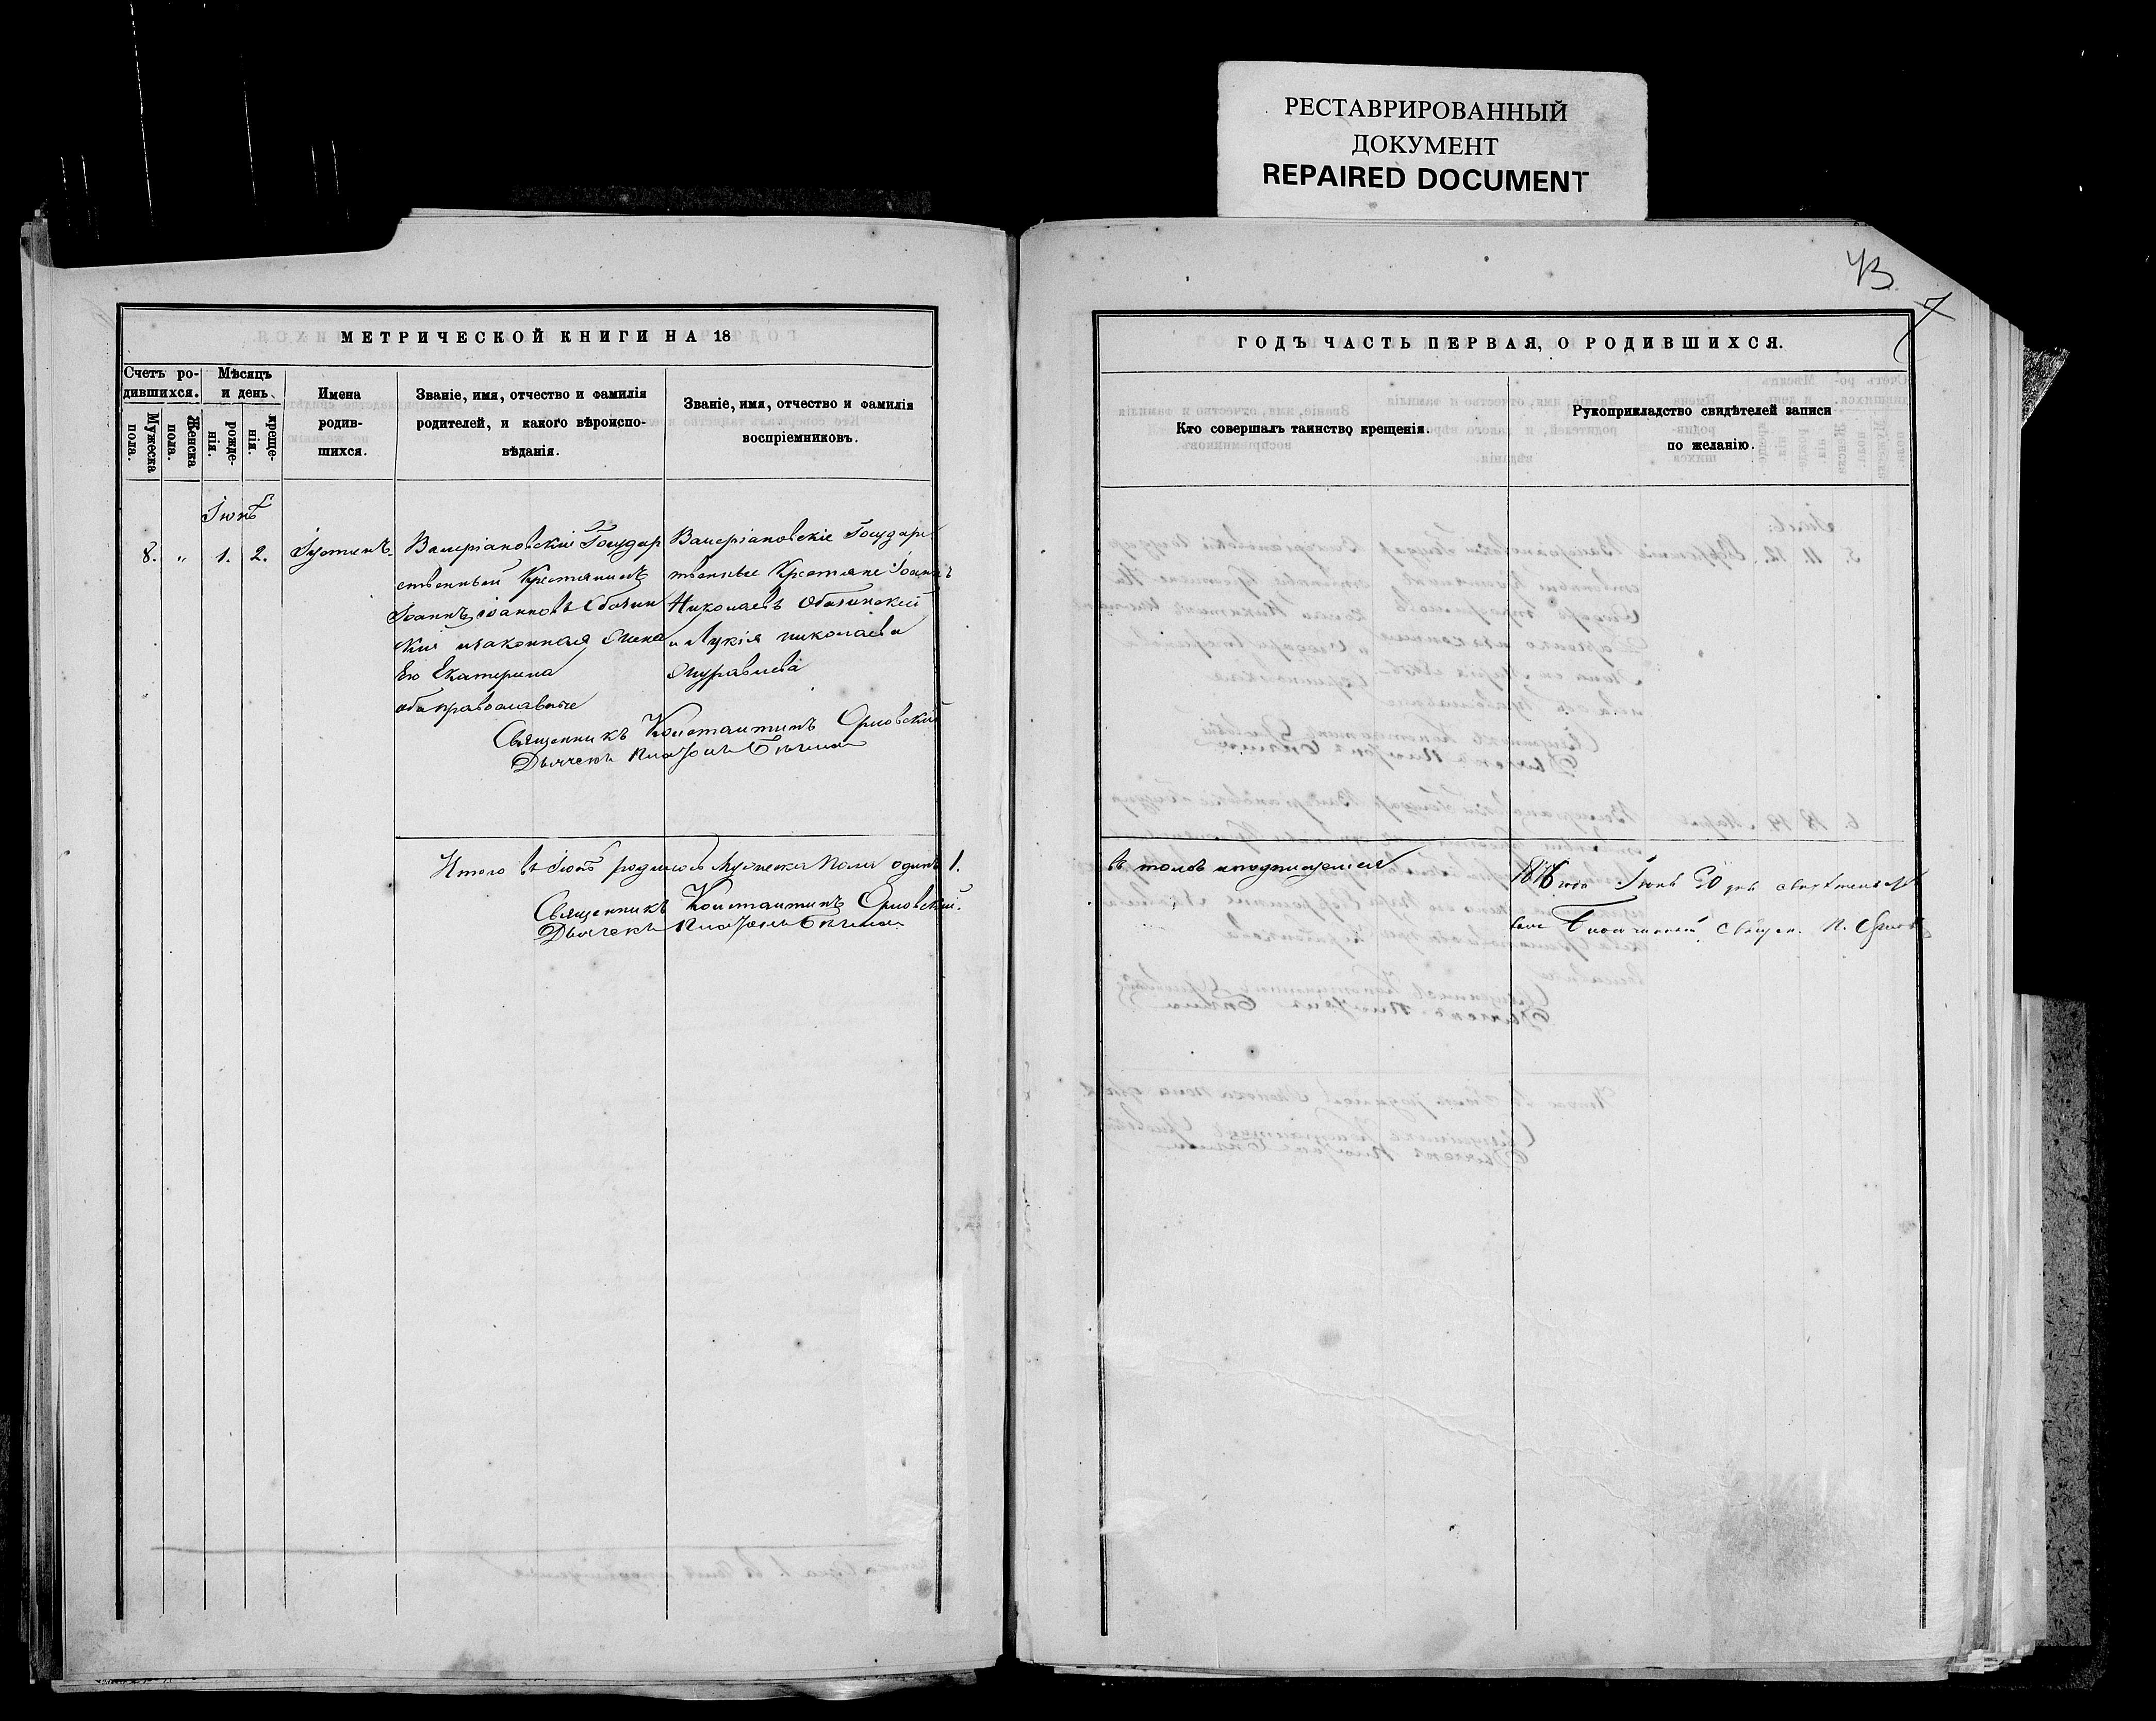 РЕСТАВРИРОВАННЫЙ
ДОКУМЕНТ
REPAIRED DOCUMENT
МЕТРИЧЕСКОЙ КНИГИ НА 18
Счетъ ро-
дившихся.
Мужеска
пола.
Женска
пола.
Мѣсяцъ
и день.
рожде-
нія.
креще-
нія.
Имена
родив-
шихся.
Званіе, имя, отчество и фамилія
родителей, и какого вѣроиспо-
вѣданія.
Званіе, имя, отчество и фамилія
воспріемниковъ.
Іюнь
8. „ 1. 2. Іустинъ.
Валеріановскій Государ
ственный Крестянинъ
Іоаннъ Іоанновъ
кій изаконная Жена
Его Екатерина
оба православные
Валеріановскіе Государс
твенные Крестяне Іоаннъ
Николаевъ
и Лукія николаева
Журавлева
Священникъ Константинъ Орловскій
Дьячекъ
Итого въ Іюнѣ родилось Мужеска Пола одинъ 1.
Священникъ Константинъ Орловскій.
Дьячекъ
43
7
ГОДЪ ЧАСТЬ ПЕРВАЯ, О РОДИВШИХСЯ.
Кто совершалъ таинство крещенія.
Рукоприкладство свидѣтелей записи
по желанію.
въ томъ иподписуемся
года Іюня 30 дня свидѣтельст
валъ Благочинный, Священ.